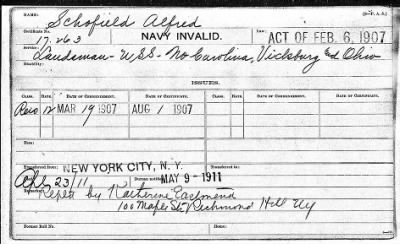 (3-2.P.A.G.)
Name. Schofield Alfred
NAVY INVALID. Law.
Certificate No. 17,263 ACT OF FEB. 6, 1907
Service. Landsman - USS - No Carolina, Vicksburg and Ohio
Disability.
ISSUES.
CLASS. DATE OF COMMENCEMENT. DATE OF CERTIFICATE. CLASS. DATE OF COMMENCEMENT. DATE OF CERTIFICATE.
12 MAR 19 1907 AUG 1 1907
Transferred from NEW YORK CITY, N. Y. Transferred to
23/11 Bureau notified MAY 9 - 1911
by Katherine Eastmond
100 Maple St. Richmond Hill Ny
Former Roll No. Home.